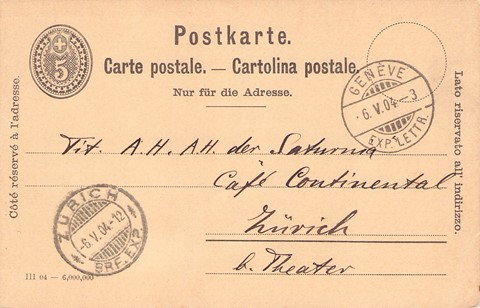 5
Postkarte.
Carte postale. — Cartolina postale.
Nur für die Adresse.
Côté réservé à l'adresse.
Lato riservato all' indirizzo.
GENÈVE
·6.V.04—3
EXP. LETTR.
Tit. A.H. AH. der Saturnia
Café Continental
Zürich
b. Theater
ZÜRICH
-6.V.04.-12
BRF. EXP.
III 04 — 6,000,000